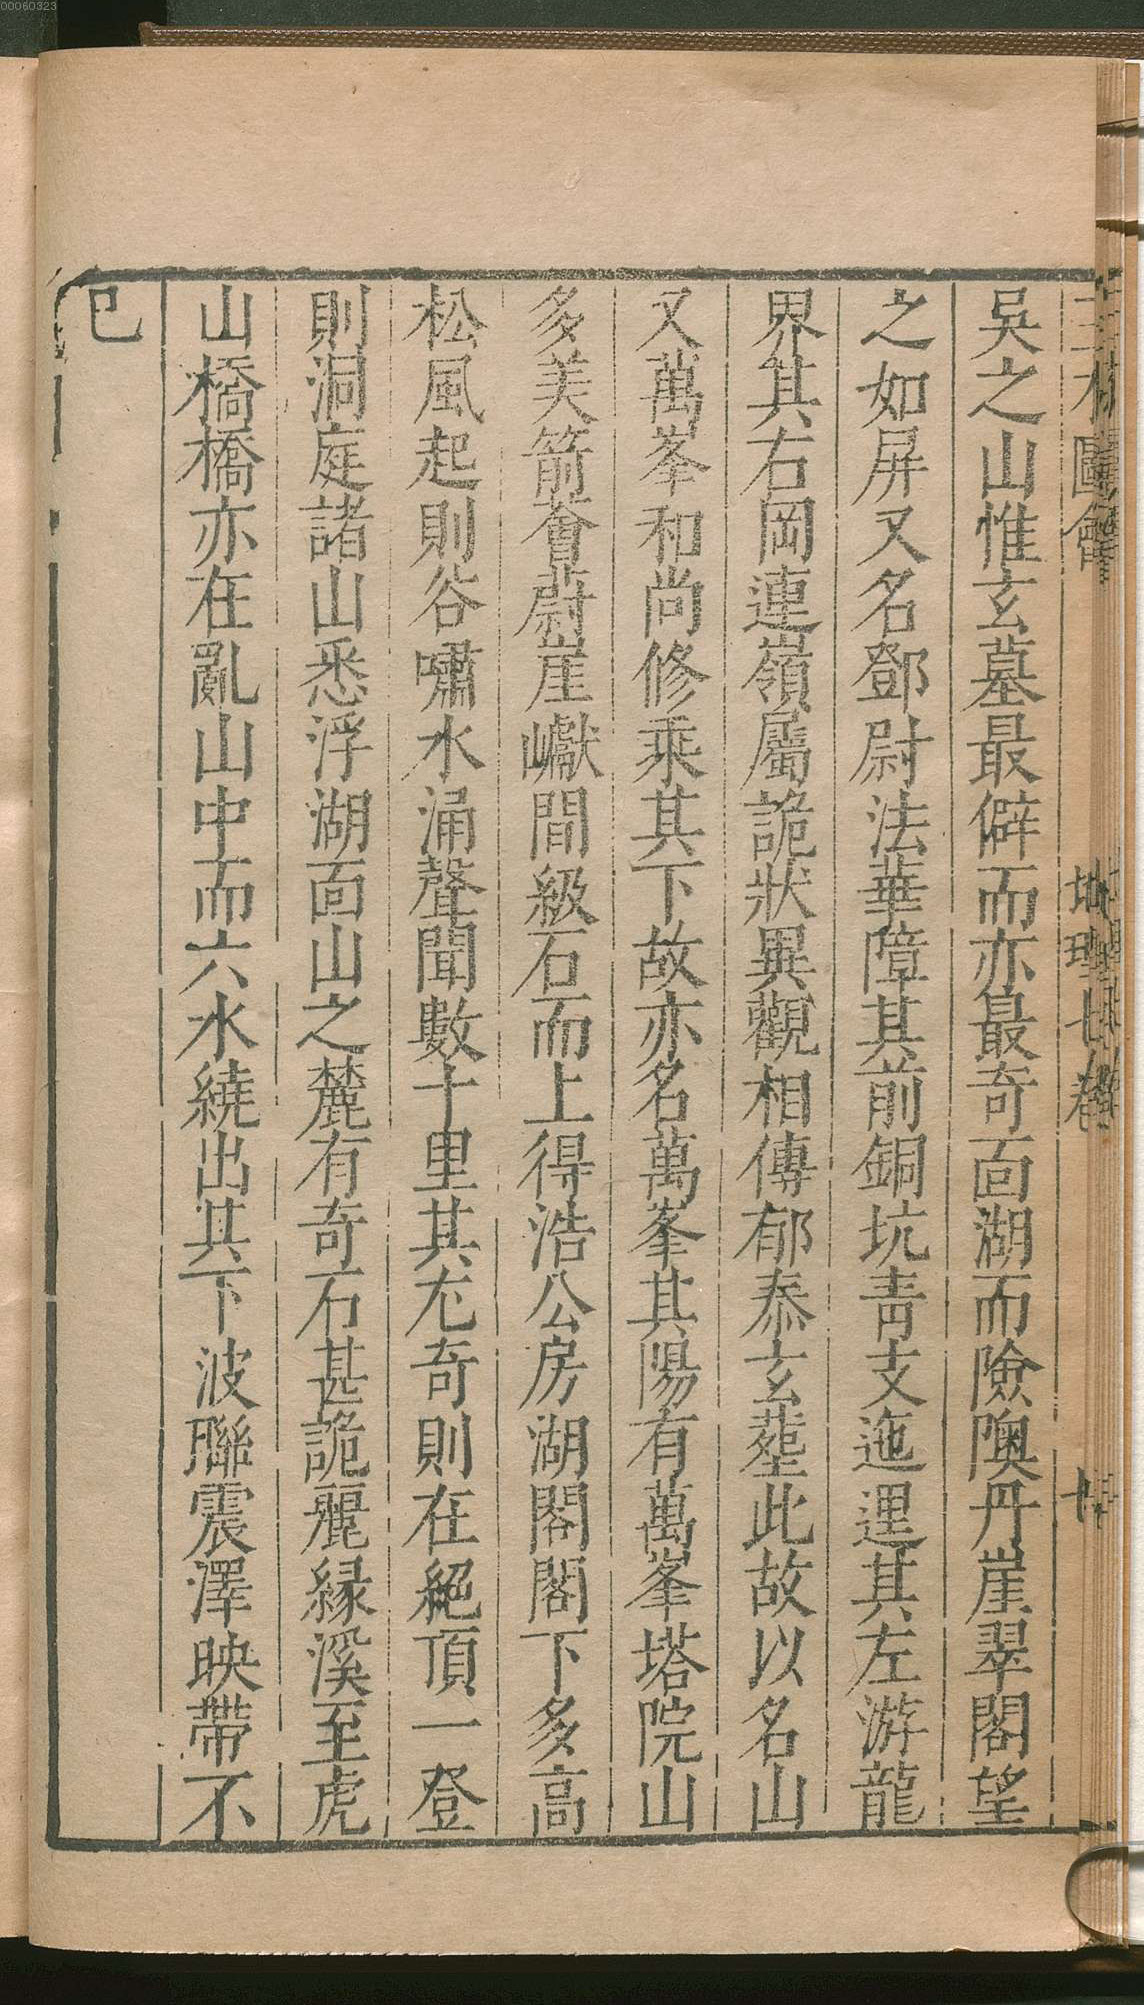 00060323
吳之山惟玄墓最僻而亦最奇面湖而險隩丹崖翠閣望
之如屏又名鄧尉法華障其前銅坑青支迤邐其左游龍
界其右岡連嶺屬詭狀異觀相傳郁泰玄葬此故以名山
又萬峯和尚修乘其下故亦名萬峯其陽有萬峯塔院山
多美箭薈蔚崖巘間級石而上得浩公房湖閣閣下多高
松風起則谷嘯水涌聲聞數十里其尤奇則在絕頂一登
則洞庭諸山悉浮湖面山之麓有奇石甚詭麗緣溪至虎
山橋橋亦在亂山中而六水繞出其下波聯震澤映帶不
已